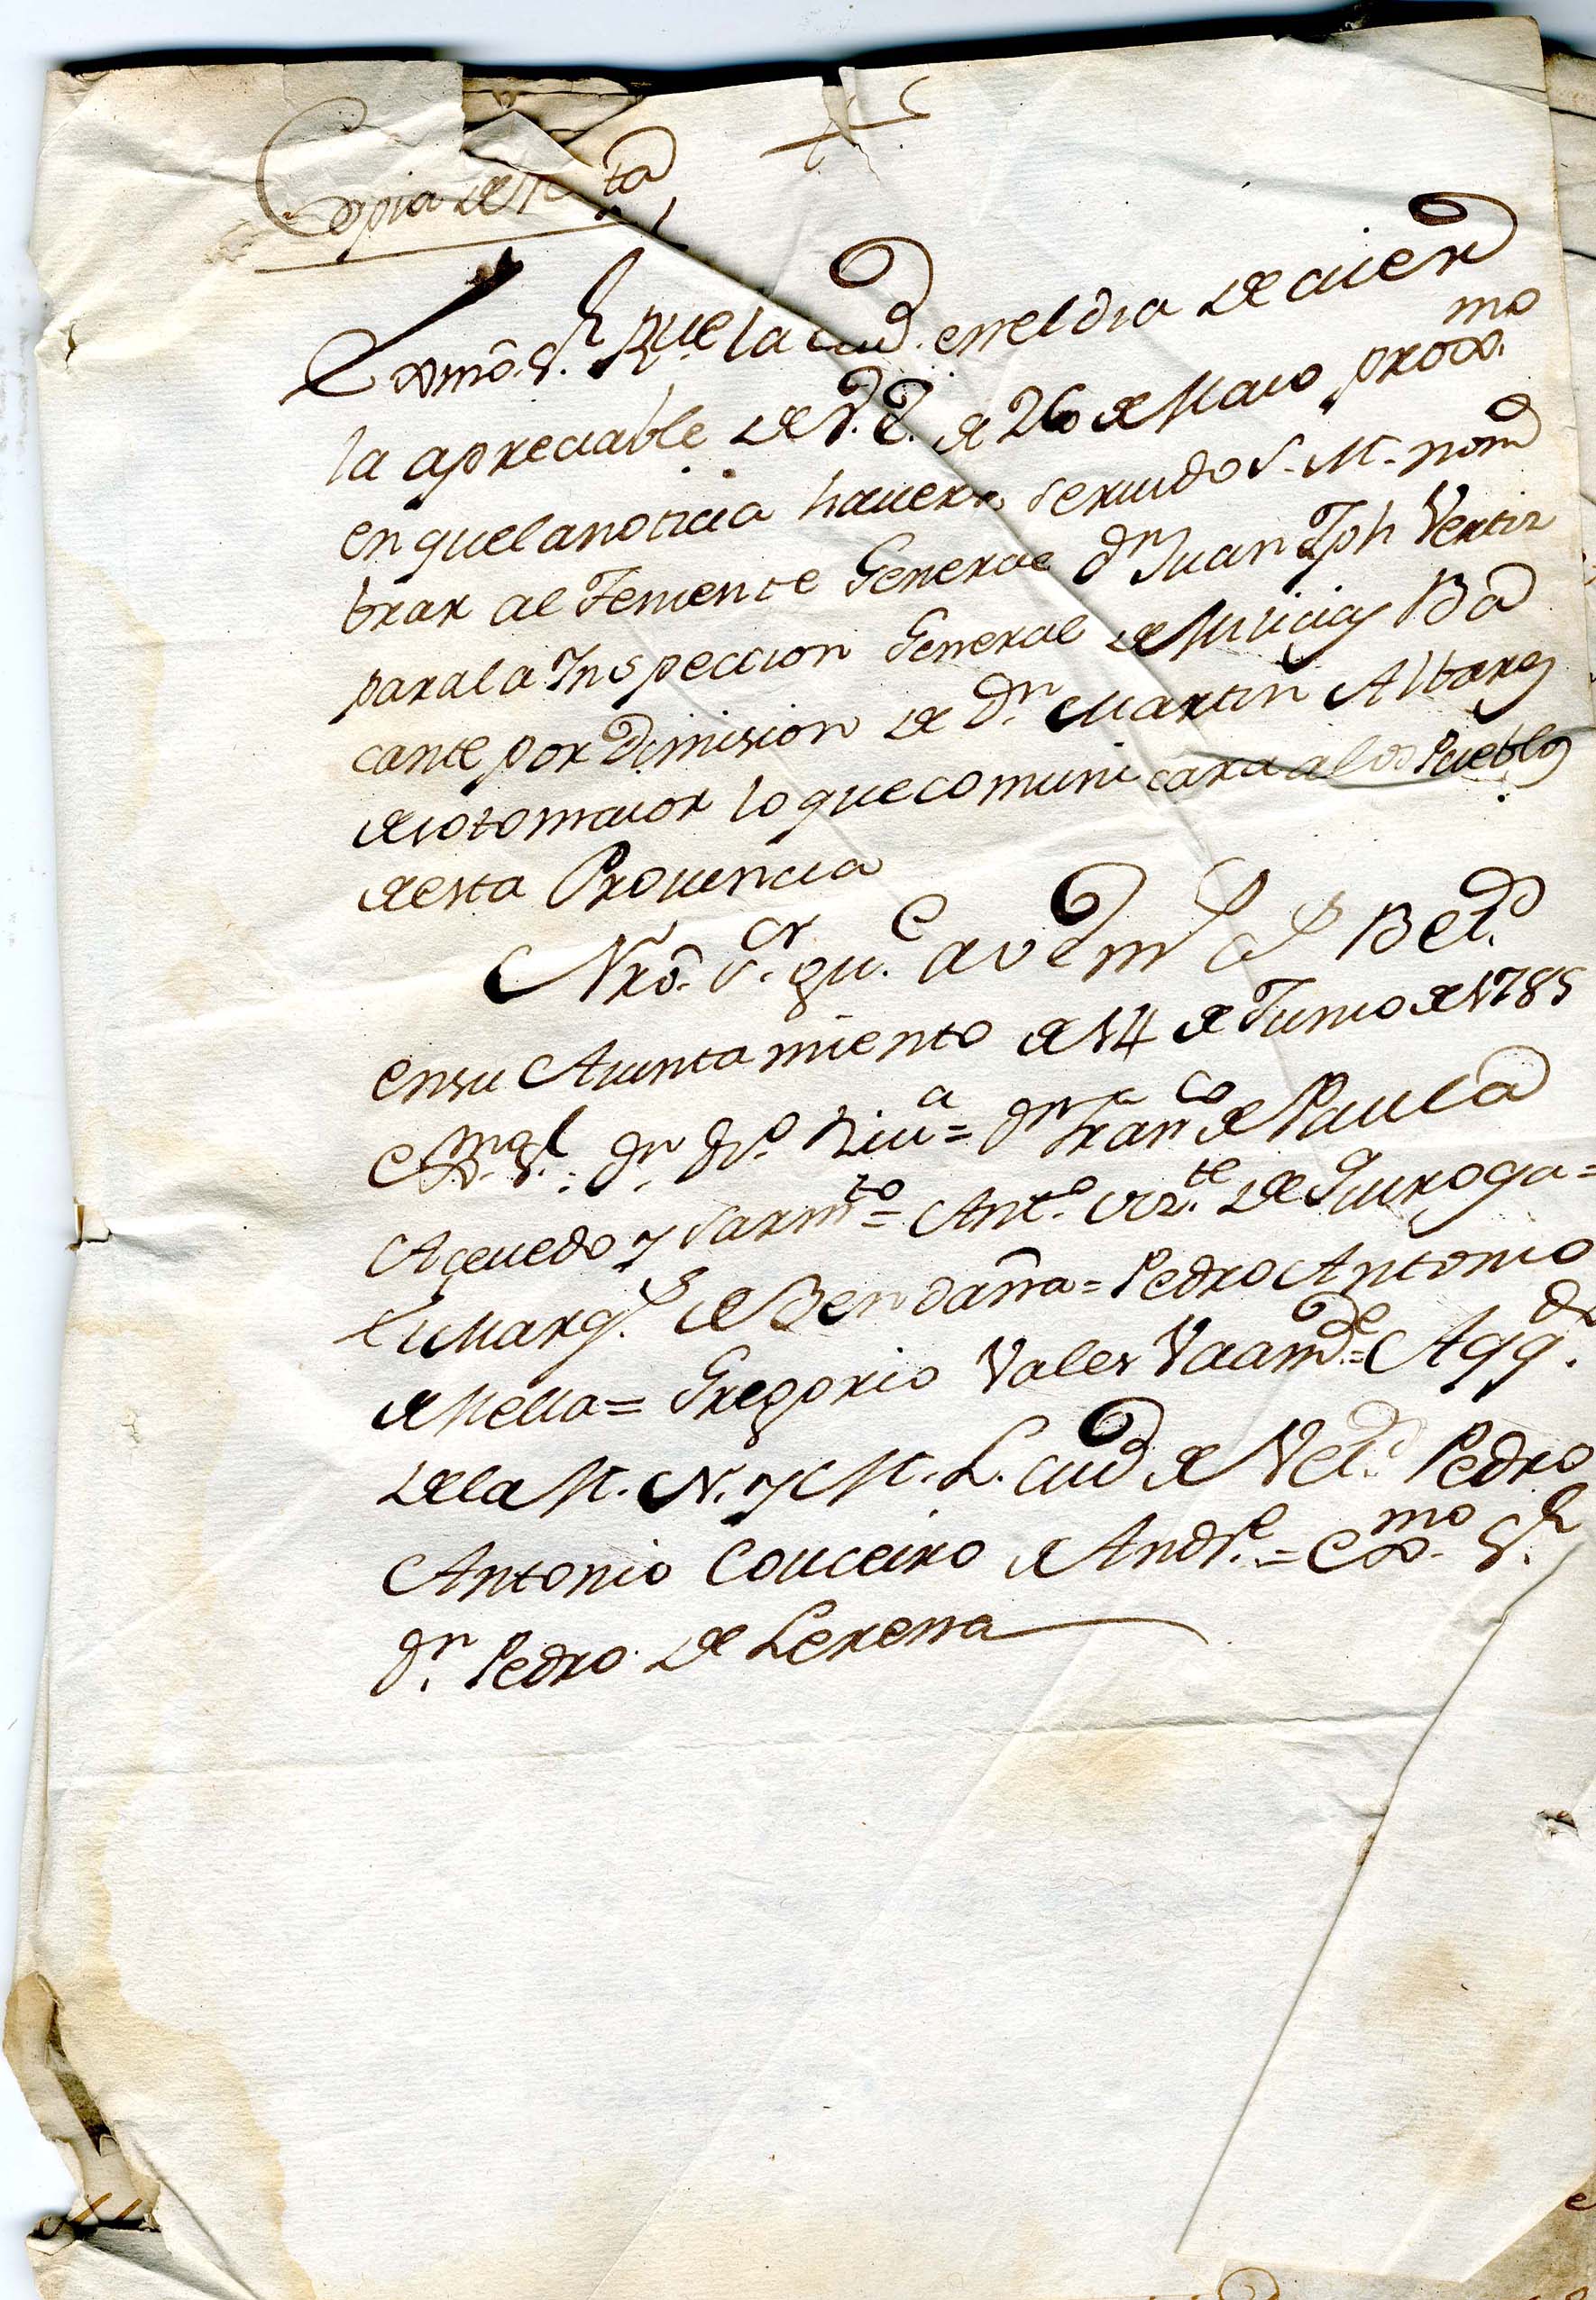 Copia de R.ta
Exmô. S.r Rue la Ciud. en el dia de aier
la apreciable de V.E. de 26 de Maio prox.mo
en que la noticia hauerse seruido S. M. nom
brar al Teniente General d.n Juan Jph Vertiz
para la Inspeccion General de Milicias Ba
cante por Dimision de D.n Martin Albarez
de sotomaior lo que comunicara a los Pueblos
de esta Prouincia
Nrô. S.or gu.e a V E m s a s Bet.os
en su Aiuntamiento de 14 de Junio de 1785
Ex.mo S.r: D.n Riu.a = d.n Fran.co de Paula
Aceuedo y Sarm.to = Ant.o Viz.te de Quiroga =
el Marq.s de Bendaña = Pedro Antonio
de Mella = Gregorio Vales Vaam.de = Aqq.do
de la M. N. y M. L. Ciud de Bet.os Pedro
Antonio Couceiro de Andr.e = Ex.mo S.r
d.n Pedro de Lerena